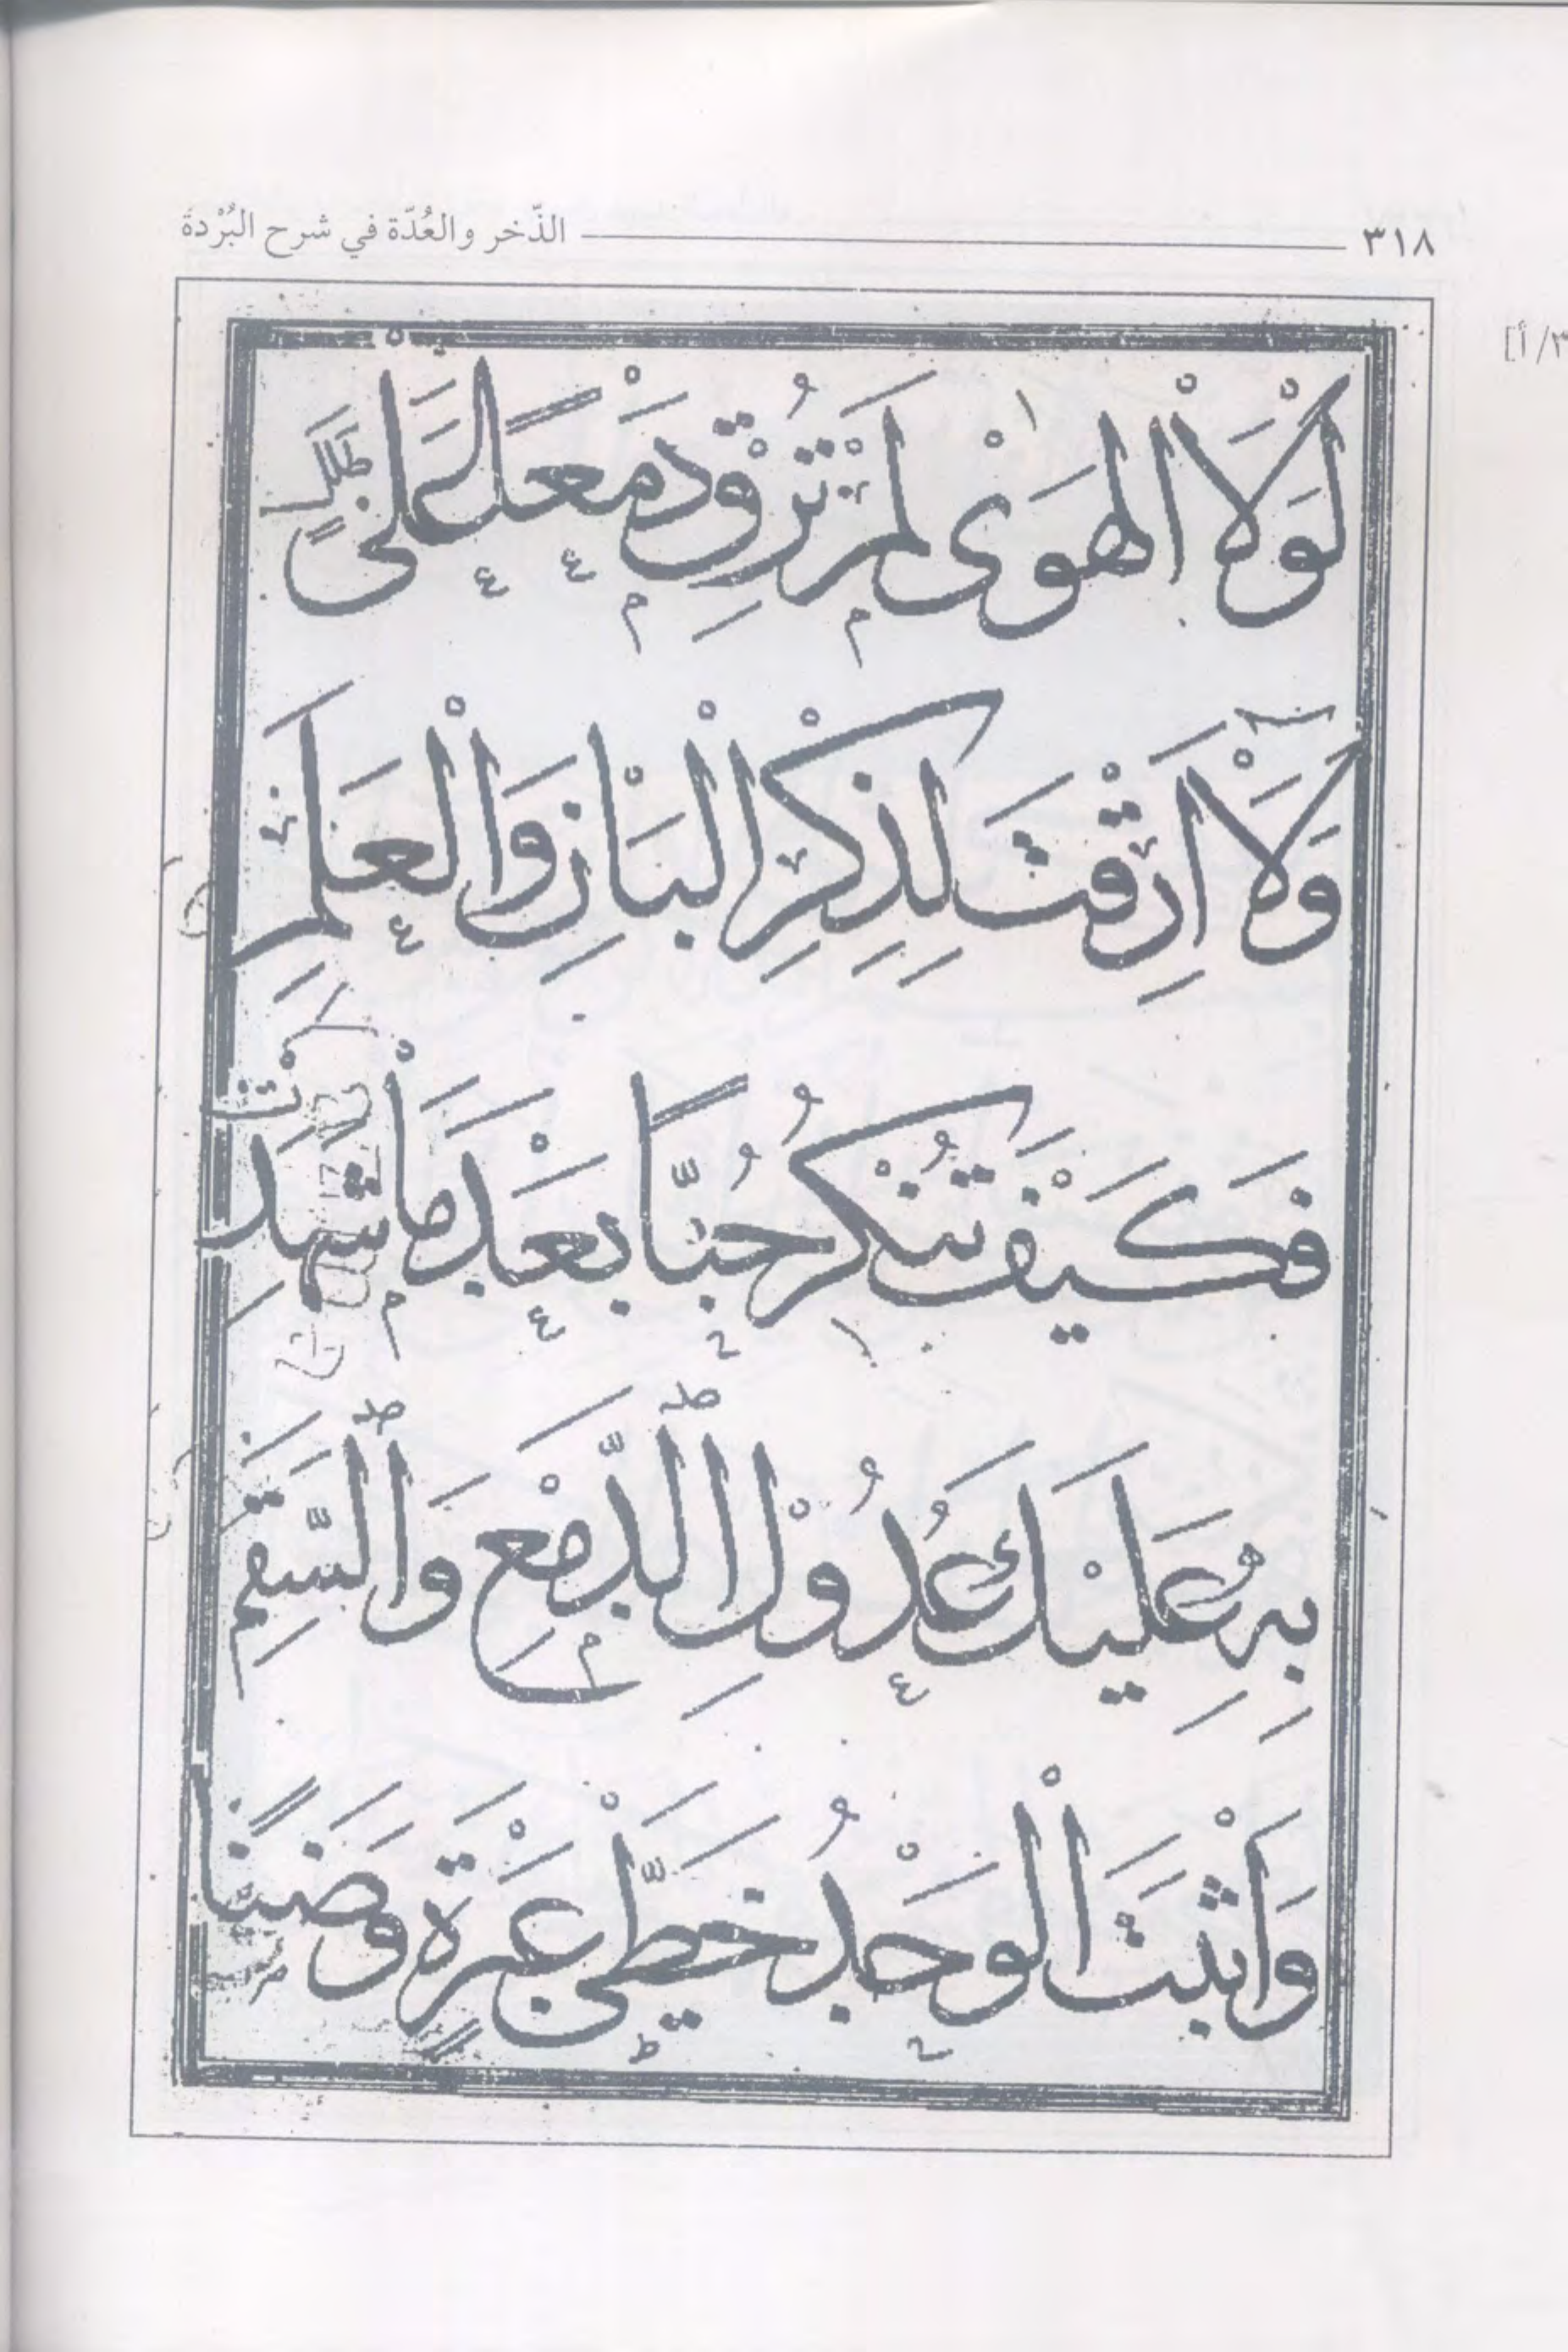 ٣١٨ الذّخر والعُدّة في شرح البُرْدة
/أ]
لَوْلَا الْهَوٰى لَمْ تُرِقْ دَمْعًا عَلٰى طَلَلٍ
وَلَا اَرِقْتَ لِذِكْرِ الْبَانِ وَالْعَلَمِ
فَكَيْفَ تُنْكِرُ حُبًّا بَعْدَ مَا شَهِدَتْ
بِهِ عَلَيْكَ عُدُوْلُ الدَّمْعِ وَالسَّقَمِ
وَاَثْبَتَ الْوَجْدُ خَطَّيْ عَبْرَةٍ وَضَنًا